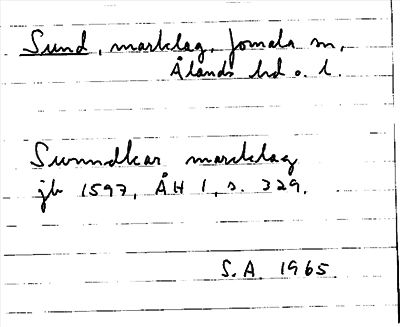 Sund, marklag, Jomala sn,
Ålands hd o. l.
Swnndkar marcklag
jb 1597, ÅH 1, s. 329.
S.A. 1965.